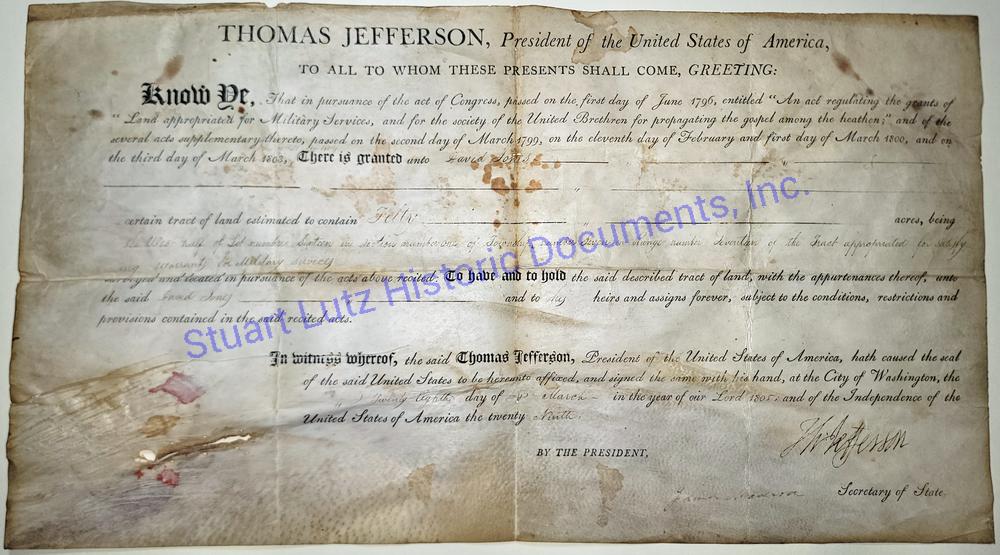 THOMAS JEFFERSON, President of the United States of America,
TO ALL TO WHOM THESE PRESENTS SHALL COME, GREETING:
Know Ye, That in pursuance of the act of Congress, passed on the first day of June 1796, entitled "An act regulating the grants of
"Land appropriated for Military Services, and for the society of the United Brethren for propagating the gospel among the heathen;" and of the
several acts supplementary thereto, passed on the second day of March 1799, on the eleventh day of February and first day of March 1800, and on
the third day of March 1803, There is granted unto David Jones
certain tract of land estimated to contain Fifty acres, being
the West half of Lot number Sixteen in Section number one of Township number in range number Seventeen of the Tract appropriated for satisfying
warrants for Military Services
surveyed and located in pursuance of the acts above recited: To have and to hold the said described tract of land, with the appurtenances thereof, unto
the said David Jones and to his heirs and assigns forever, subject to the conditions, restrictions and
provisions contained in the said recited acts.
In witness whereof, the said Thomas Jefferson, President of the United States of America, hath caused the seal
of the said United States to be hereunto affixed, and signed the same with his hand, at the City of Washington, the
Twenty Eighth day of March in the year of our Lord 1805 and of the Independence of the
United States of America the twenty Ninth.
Th Jefferson
BY THE PRESIDENT,
James Madison Secretary of State.
Stuart Lutz Historic Documents, Inc.